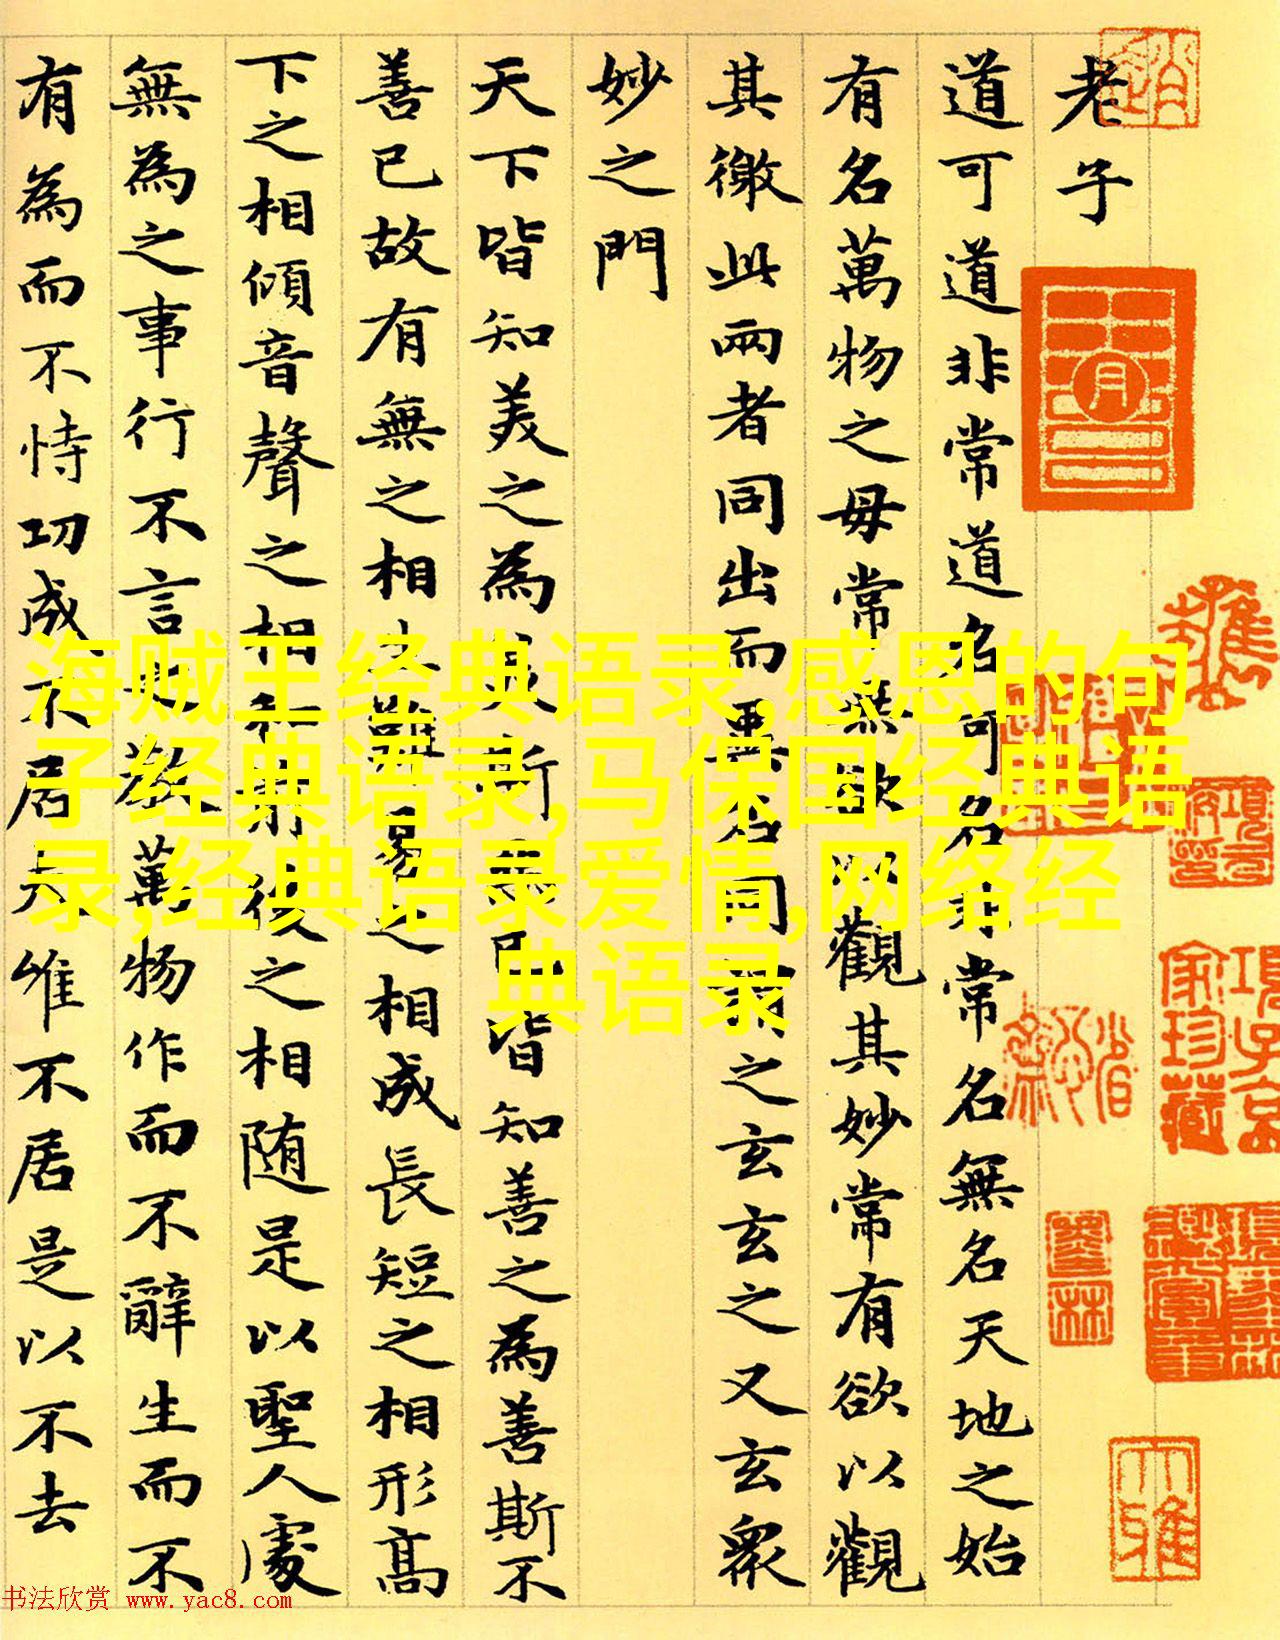 老子
道可道非常道名可名非常名無名天地之始
有名萬物之母常無欲以觀其妙常有欲以觀
其徼此兩者同出而異名同謂之玄玄之又玄衆
妙之門
天下皆知美之為美斯惡已皆知善之為善斯不
善已故有無之相生難易之相成長短之相形高
下之相傾音聲之相和前後之相随是以聖人處
無為之事行不言之教萬物作而不辭生而不
有為而不恃功成不居夫惟不居是以不去
海贼王经典语录,感恩的句
子经典语录,马保国经典语
录,经典语录爱情,网络经
典语录
項子京
家珍藏
书法欣赏 www.yac8.com